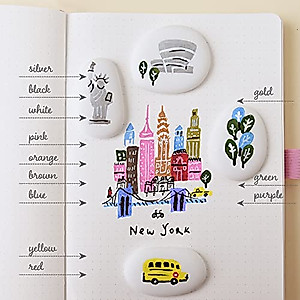 silver
black
white
pink
orange
brown
blue
yellow
red
gold
green
purple
NEW YORK